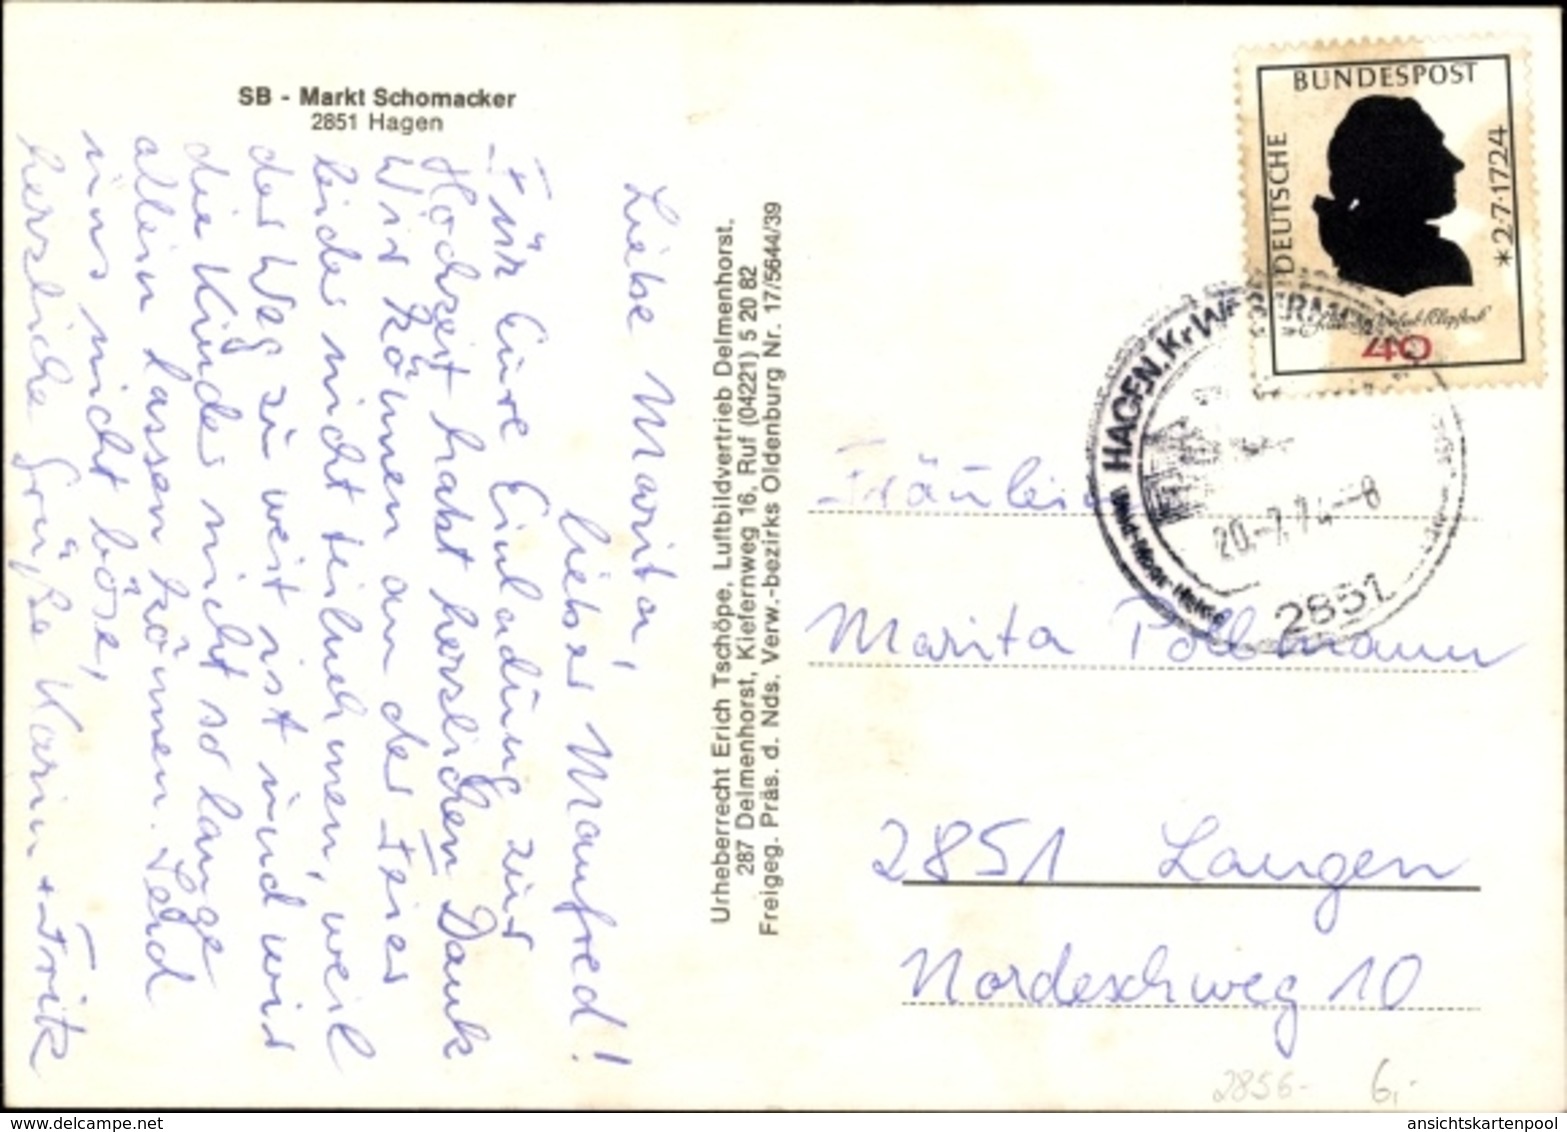 SB - Markt Schomacker
2851 Hagen
Liebe Marita,
lieber Manfred!
Für Eure Einladung zur
Hochzeit habt herzlichen Dank
Wir können an der Feier
leider nicht teilnehmen, weil
der Weg zu weit ist und wir
die Kinder nicht so lange
allein lassen können. Seid
uns nicht böse,
herzliche Grüße Karin + Fritz
Urheberrecht Erich Tschöpe, Luftbildvertrieb Delmenhorst.
287 Delmenhorst, Kiefernweg 16, Ruf (04221) 5 20 82
Freigeg. Präs. d. Nds. Verw.-bezirks Oldenburg Nr. 17/5644/39
DEUTSCHE
BUNDESPOST
*2·7·1724
40
HAGEN, Kr WESERMÜNDE
20.-7.74-8
2851
Fräulein
Marita Pollmann
2851 Langen
Nordeschweg 10
2856-
6,-
ansichtskartenpool